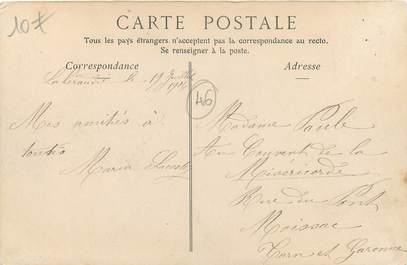 10f
CARTE POSTALE
Tous les pays étrangers n'acceptent pas la correspondance au recto.
Se renseigner à la poste.
Correspondance
Adresse
le 19 Juillet
46
Mes amitiés à
toutes
Maria
Madame Paule
Au Couvent de la
Miséricorde
Rue du Pont
Moissac
Tarn et Garonne